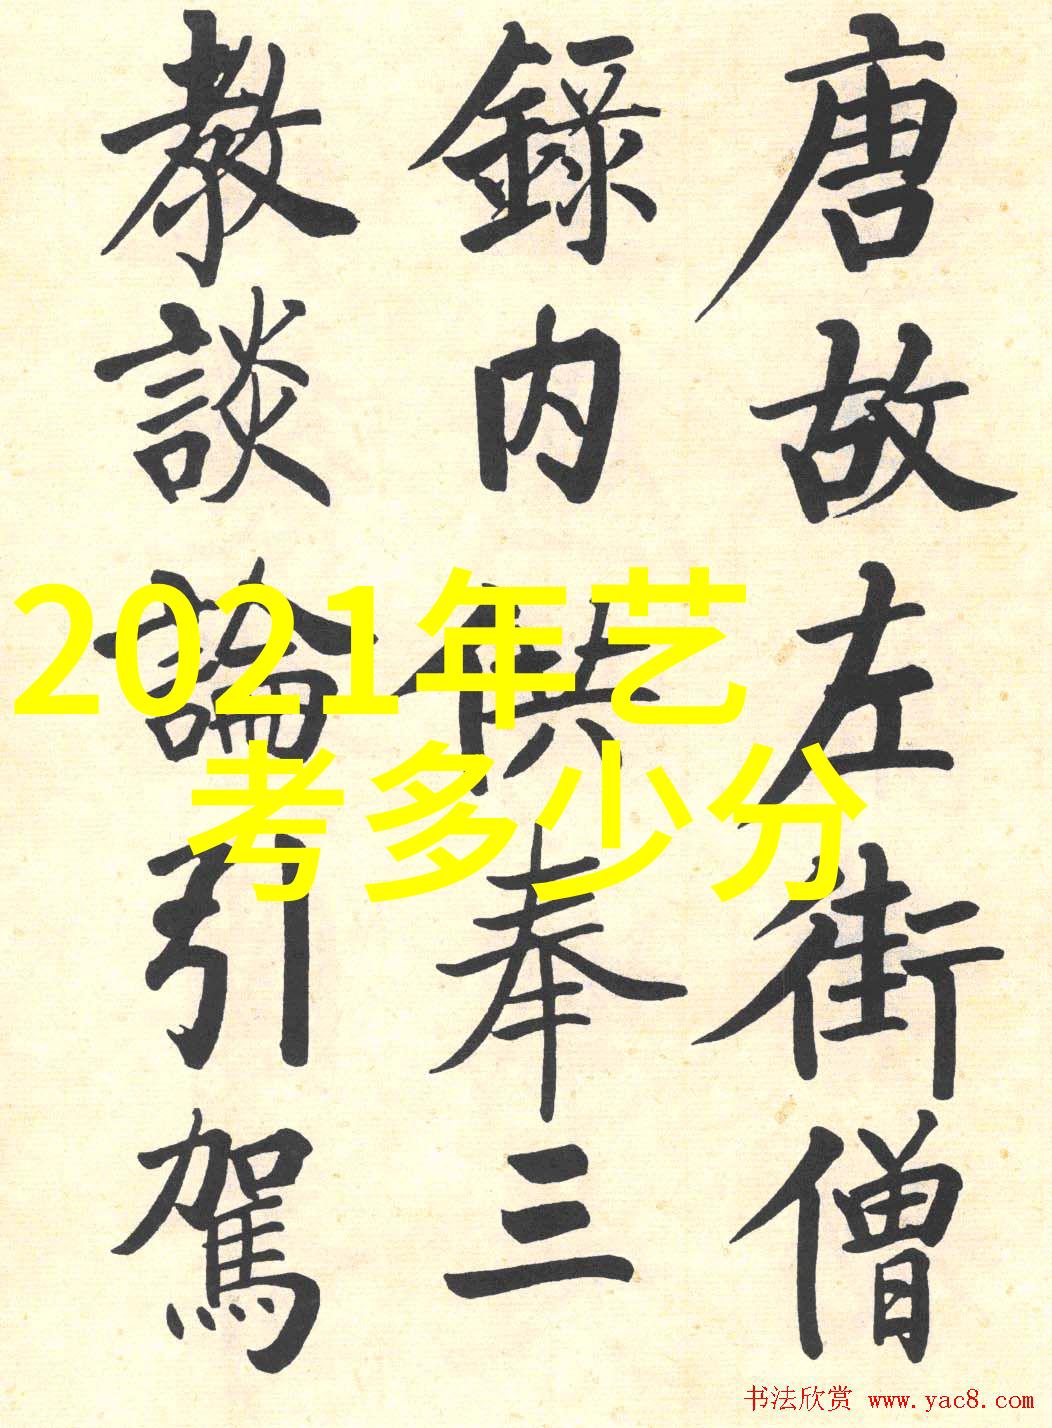 唐故左街僧
錄内供奉三
教談論引駕
2021年艺
考多少分
书法欣赏 www.yac8.com